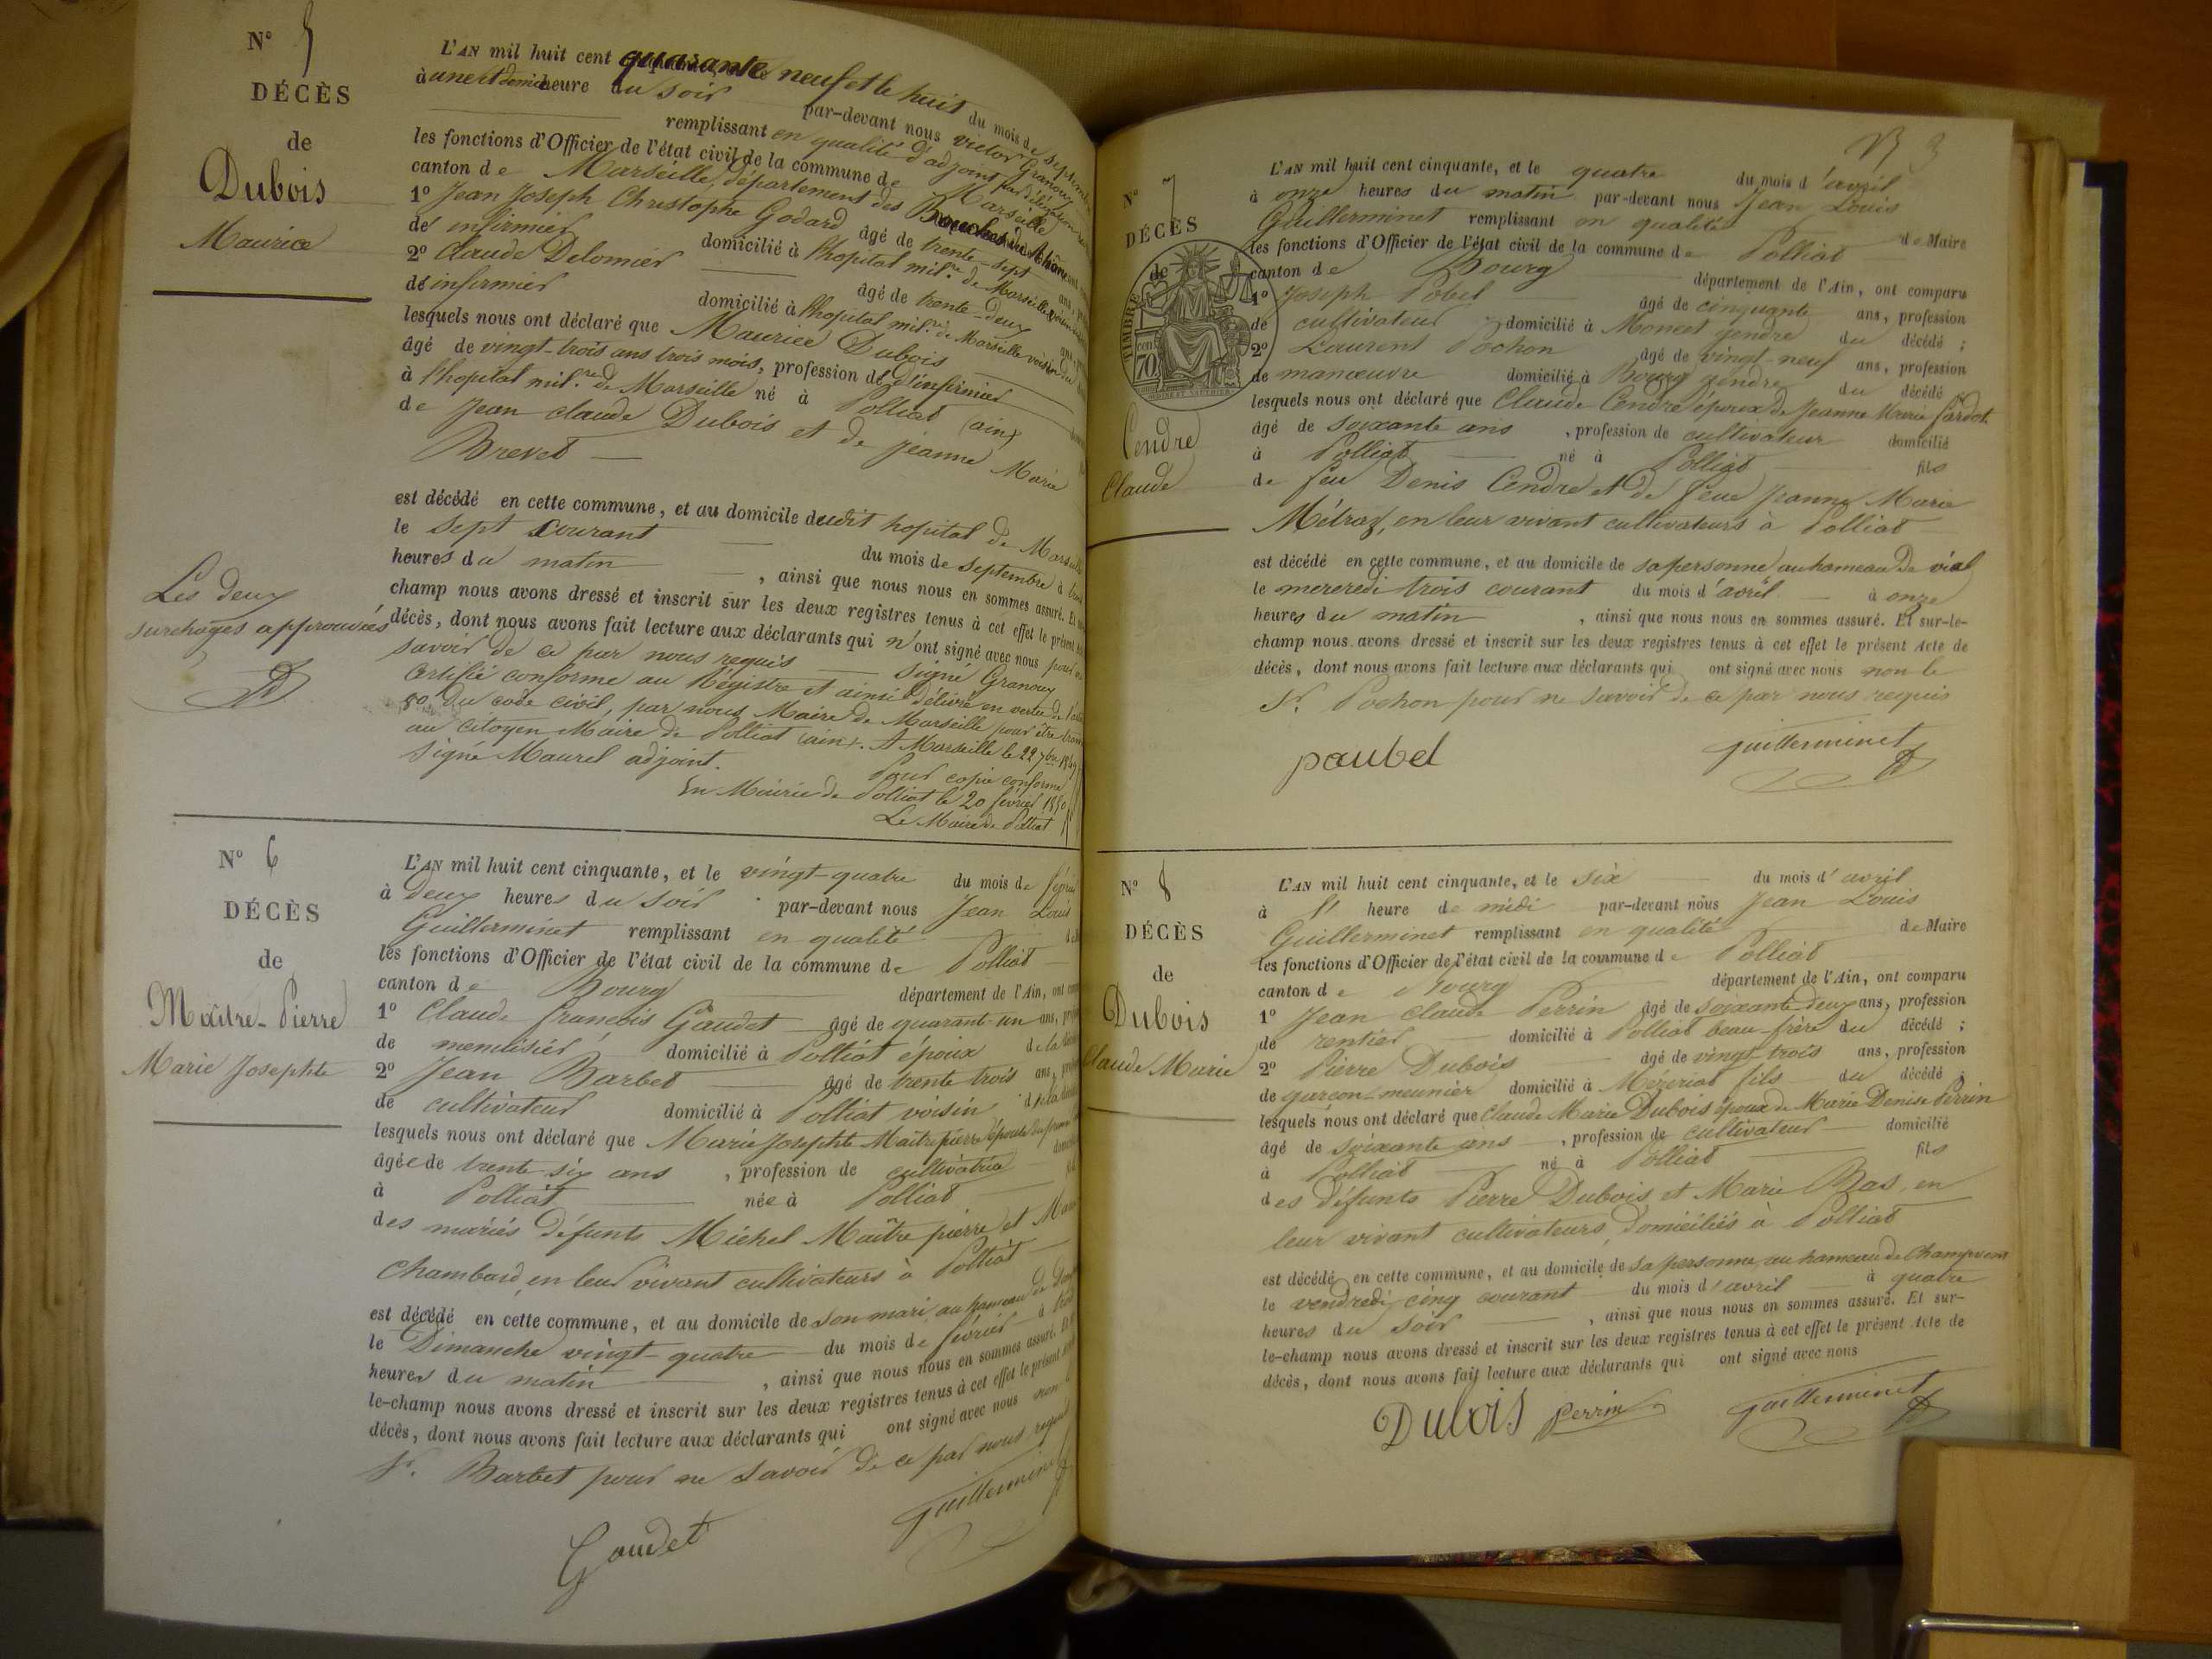 N° 5
DÉCÈS
de
Dubois
Maurice
L'AN mil huit cent quarante neuf et le huit du mois de septembre
à une et demie heure du soir par-devant nous victor Granoux
remplissant en qualité d'adjoint par délégation
les fonctions d'Officier de l'état civil de la commune de Marseille
canton de Marseille, département des Bouches du Rhône
1° Jean Joseph Christophe Godard âgé de trente-sept ans,
de infirmier domicilié à l'hopital mil.re de Marseille
2° Claude Delomier âgé de trente-deux ans,
de infirmier domicilié à l'hopital mil.re de Marseille voisin du
lesquels nous ont déclaré que Maurice Dubois
âgé de vingt-trois ans trois mois, profession de d'infirmier
à l'hopital mil.re de Marseille né à Polliat (ain)
de Jean claude Dubois et de Jeanne Marie
Brevet
est décédé en cette commune, et au domicile dudit hopital de Marseille
le sept courant du mois de septembre à
heures du matin , ainsi que nous nous en sommes assuré. Et
champ nous avons dressé et inscrit sur les deux registres tenus à cet effet le présent
décès, dont nous avons fait lecture aux déclarants qui n'ont signé avec nous pour
savoir de ce par nous requis signé Granoux
Certifié conforme au Régistre et ainsi délivré en vertu de
80 du code civil, par nous Maire de Marseille pour être
au citoyen Maire de Polliat (ain). A Marseille le 22 7bre 1849
signé Maurel adjoint.
Pour copie conforme
En Mairie de Polliat le 20 février 1850
Le Maire de Polliat
Les deux
surchages approuvées
N° 6
DÉCÈS
de
Maître-Pierre
Marie Josephte
L'AN mil huit cent cinquante, et le vingt-quatre du mois de
à deux heures du soir par-devant nous Jean Louis
Guillerminet remplissant en qualité
les fonctions d'Officier de l'état civil de la commune de Polliat
canton de Bourg département de l'Ain, ont
1° Claude francois Gaudet âgé de quarant-un ans,
de menuisier domicilié à Polliat époux de la
2° Jean Barbet âgé de trente trois ans,
de cultivateur domicilié à Polliat voisin de la
lesquels nous ont déclaré que Marie Josephte Maître pierre épouse du premier
âgée de trente six ans , profession de cultivatrice
à Polliat née à Polliat
des mariés défunts Michel Maître pierre et
Chambard, en leur vivant cultivateurs à Polliat
est décédé en cette commune, et au domicile de son mari au hameau de
le Dimanche vingt-quatre du mois de février à
heures du matin , ainsi que nous nous en sommes assuré. Et
le-champ nous avons dressé et inscrit sur les deux registres tenus à cet effet le présent
décès, dont nous avons fait lecture aux déclarants qui ont signé avec nous non
Sr. Barbet pour ne savoir de ce par nous requis
Gaudet
guillerminet
3
N° 7
DÉCÈS
de
TIMBRE
70
Cendre
Claude
L'AN mil huit cent cinquante, et le quatre du mois d'avril
à onze heures du matin par-devant nous Jean Louis
Guillerminet remplissant en qualité de Maire
les fonctions d'Officier de l'état civil de la commune de Polliat
canton de Bourg département de l'Ain, ont comparu
1° Joseph Pobel âgé de cinquante ans, profession
de cultivateur domicilié à Moncet gendre du décédé ;
2° Laurent Pochon âgé de vingt-neuf ans, profession
de manœuvre domicilié à Bourg gendre du décédé
lesquels nous ont déclaré que Claude Cendre époux de Jeanne Marie
âgé de soixante ans , profession de cultivateur domicilié
à Polliat né à Polliat fils
de feu Denis Cendre et de feue Jeanne Marie
Métraz, en leur vivant cultivateurs à Polliat
est décédé en cette commune, et au domicile de sa personne au hameau de vial
le mercredi trois courant du mois d'avril à onze
heures du matin , ainsi que nous nous en sommes assuré. Et sur-le-
champ nous avons dressé et inscrit sur les deux registres tenus à cet effet le présent Acte de
décès, dont nous avons fait lecture aux déclarants qui ont signé avec nous non le
Sr. Pochon pour ne savoir de ce par nous requis
paubel
guillerminet
N° 8
DÉCÈS
de
Dubois
Claude Marie
L'AN mil huit cent cinquante, et le six du mois d'avril
à l' heure de midi par-devant nous Jean Louis
Guillerminet remplissant en qualité de Maire
les fonctions d'Officier de l'état civil de la commune de Polliat
canton de Bourg département de l'Ain, ont comparu
1° Jean claude Perrin âgé de soixante-deux ans, profession
de rentier domicilié à Polliat beau-frère du décédé ;
2° Pierre Dubois âgé de vingt-trois ans, profession
de garcon-meunier domicilié à Mézeriat fils du décédé ;
lesquels nous ont déclaré que Claude Marie Dubois époux de Marie Denise Perrin
âgé de soixante ans , profession de cultivateur domicilié
à Polliat né à Polliat fils
des défunts Pierre Dubois et Marie Bas, en
leur vivant cultivateurs, domiciliés à Polliat
est décédé en cette commune, et au domicile de sa personne, au hameau de
le vendredi cinq courant du mois d'avril à quatre
heures du soir , ainsi que nous nous en sommes assuré. Et sur-
le-champ nous avons dressé et inscrit sur les deux registres tenus à cet effet le présent Acte de
décès, dont nous avons fait lecture aux déclarants qui ont signé avec nous
Dubois perrin
guillerminet